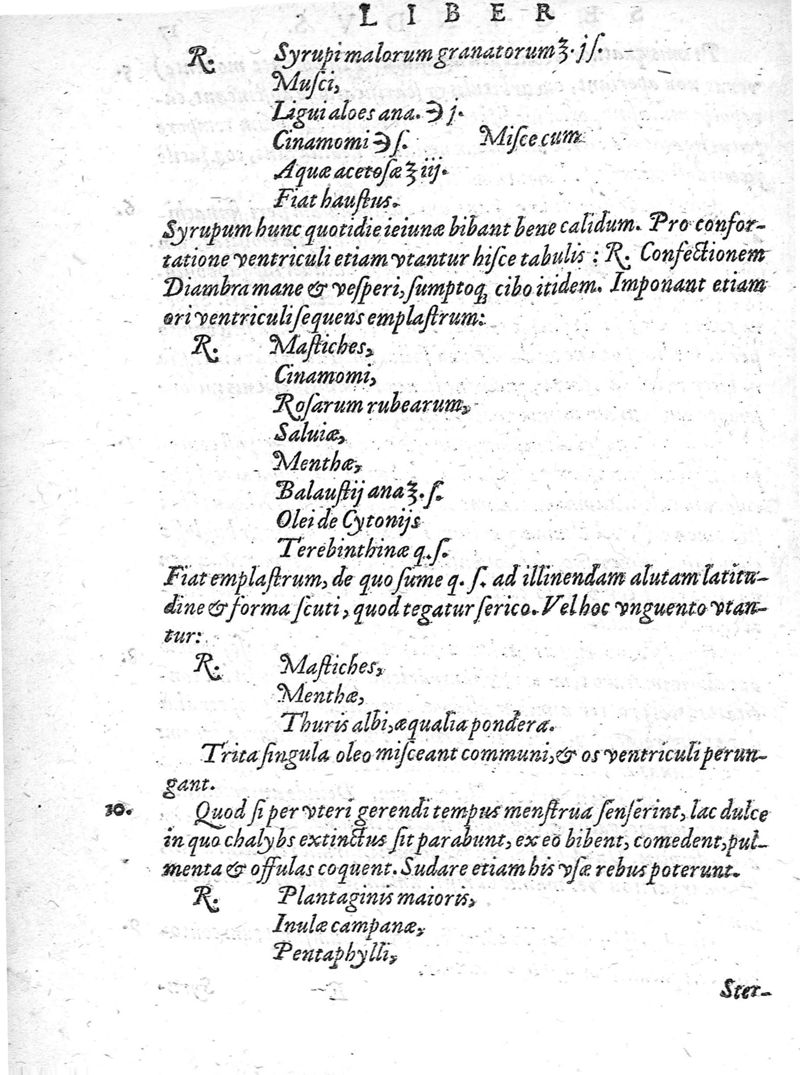 LIBER
R. Syrupi malorum granatorum ʒ. jſ.
Muſci,
Ligui aloes ana. ℈ j.
Cinamomi ℈ ſ. Miſce cum
Aquæ acetoſæ ʒ iij.
Fiat hauſtus.
Syrupum hunc quotidie ieiunæ bibant bene calidum. Pro confor-
tatione ventriculi etiam vtantur hiſce tabulis : R. Confectionem
Diambra mane & veſperi, ſumptoq; cibo itidem. Imponant etiam
ori ventriculi ſequens emplaſtrum:
R. Maſtiches,
Cinamomi,
Roſarum rubearum,
Saluiæ,
Menthæ,
Balauſtij ana ʒ. ſ.
Olei de Cytonijs
Terebinthinæ q. ſ.
Fiat emplaſtrum, de quo ſume q. ſ. ad illinendam alutam latitu-
dine & forma ſcuti, quod tegatur ſerico. Vel hoc vnguento vtan-
tur:
R. Maſtiches,
Menthæ,
Thuris albi, æqualia pondera.
Trita ſingula oleo miſceant communi, & os ventriculi perun-
gant.
10. Quod ſi per vteri gerendi tempus menſtrua ſenſerint, lac dulce
in quo chalybs extinctus ſit parabunt, ex eo bibent, comedent, pul-
menta & offulas coquent. Sudare etiam his vſæ rebus poterunt.
R. Plantaginis maioris,
Inulæ campanæ,
Pentaphylli,
Ster-